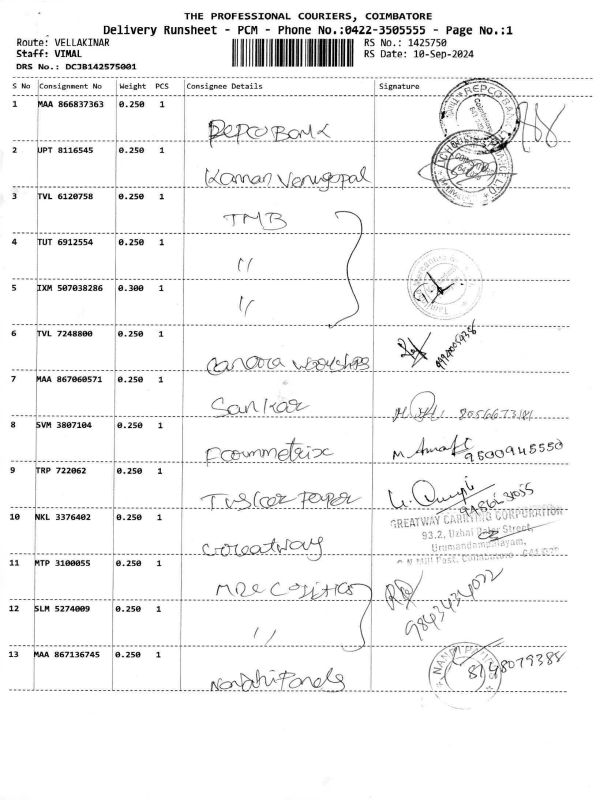 THE PROFESSIONAL COURIERS, COIMBATORE
Delivery Runsheet - PCM - Phone No.:0422-3505555 - Page No.:1
Route: VELLAKINAR RS No.: 1425750
Staff: VIMAL RS Date: 10-Sep-2024
DRS No.: DCJB142575001
S No Consignment No Weight PCS Consignee Details Signature
1 MAA 866837363 0.250 1
REPCO BANK
REPCO BANK
2 UPT 8116545 0.250 1
Kannan Venugopal
3 TVL 6120758 0.250 1
TMB
4 TUT 6912554 0.250 1
"
5 IXM 507038286 0.300 1
"
6 TVL 7248800 0.250 1
7 MAA 867060571 0.250 1
Sankar
8 SVM 3807104 0.250 1
M. 9500945550
9 TRP 722062 0.250 1
10 NKL 3376402 0.250 1
GREATWAY CARRYING CORPORATION
93.2,
Greatway
11 MTP 3100055 0.250 1
9843434022
12 SLM 5274009 0.250 1
"
13 MAA 867136745 0.250 1
8148079388